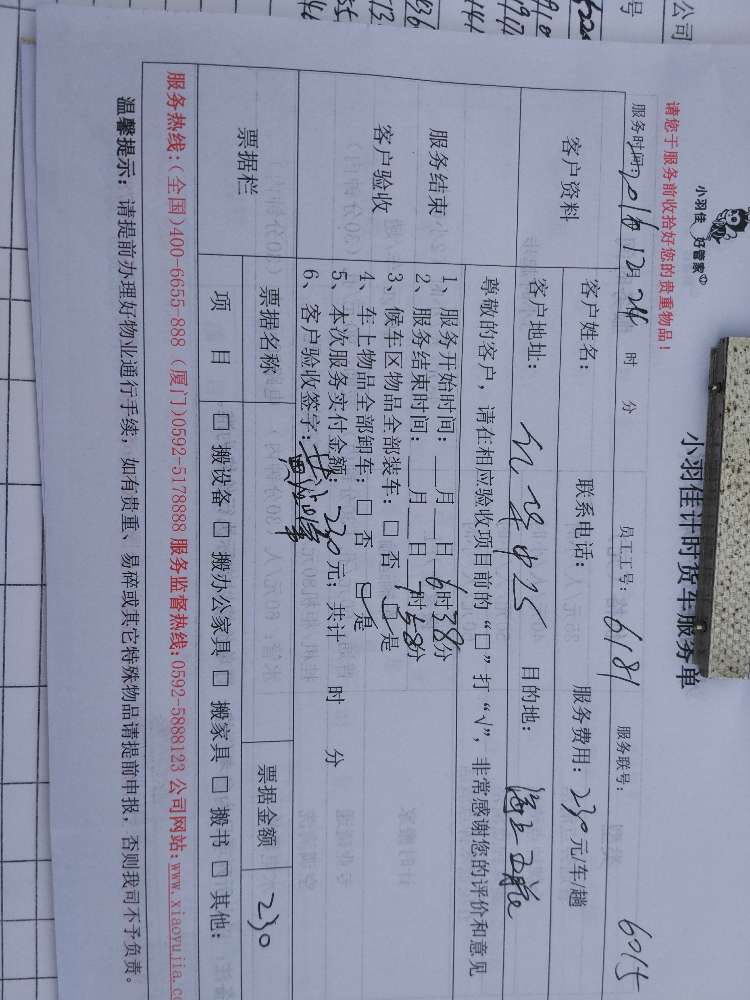 公司
号
小羽佳 好管家
小羽佳计时货车服务单
请您于服务前收拾好您的贵重物品！
服务时间：2016年12月24 时 分 员工工号：6181 服务联号：6015
客户资料
客户姓名： 联系电话： 服务费用：230元/车/趟
客户地址： 目的地：
尊敬的客户，请在相应验收项目前的“□”打“√”，非常感谢您的评价和意见
服务结束
客户验收
1、服务开始时间：__月__日6时38分
2、服务结束时间：__月__日7时58分
3、候车区物品全部装车：□ 否 □ 是
4、车上物品全部卸车：□ 否 □ 是
5、本次服务实付金额：230元；共计 时 分
6、客户验收签字：
票据栏
票据名称 票据金额 230
项 目 □ 搬设备 □ 搬办公家具 □ 搬家具 □ 搬书 □ 其他：
服务热线：(全国)400-6655-888 (厦门)0592-5178888 服务监督热线：0592-5888123 公司网站：www.xiaoyujia.co
温馨提示：请提前办理好物业通行手续，如有贵重、易碎或其它特殊物品请提前申报，否则我司不予负责。